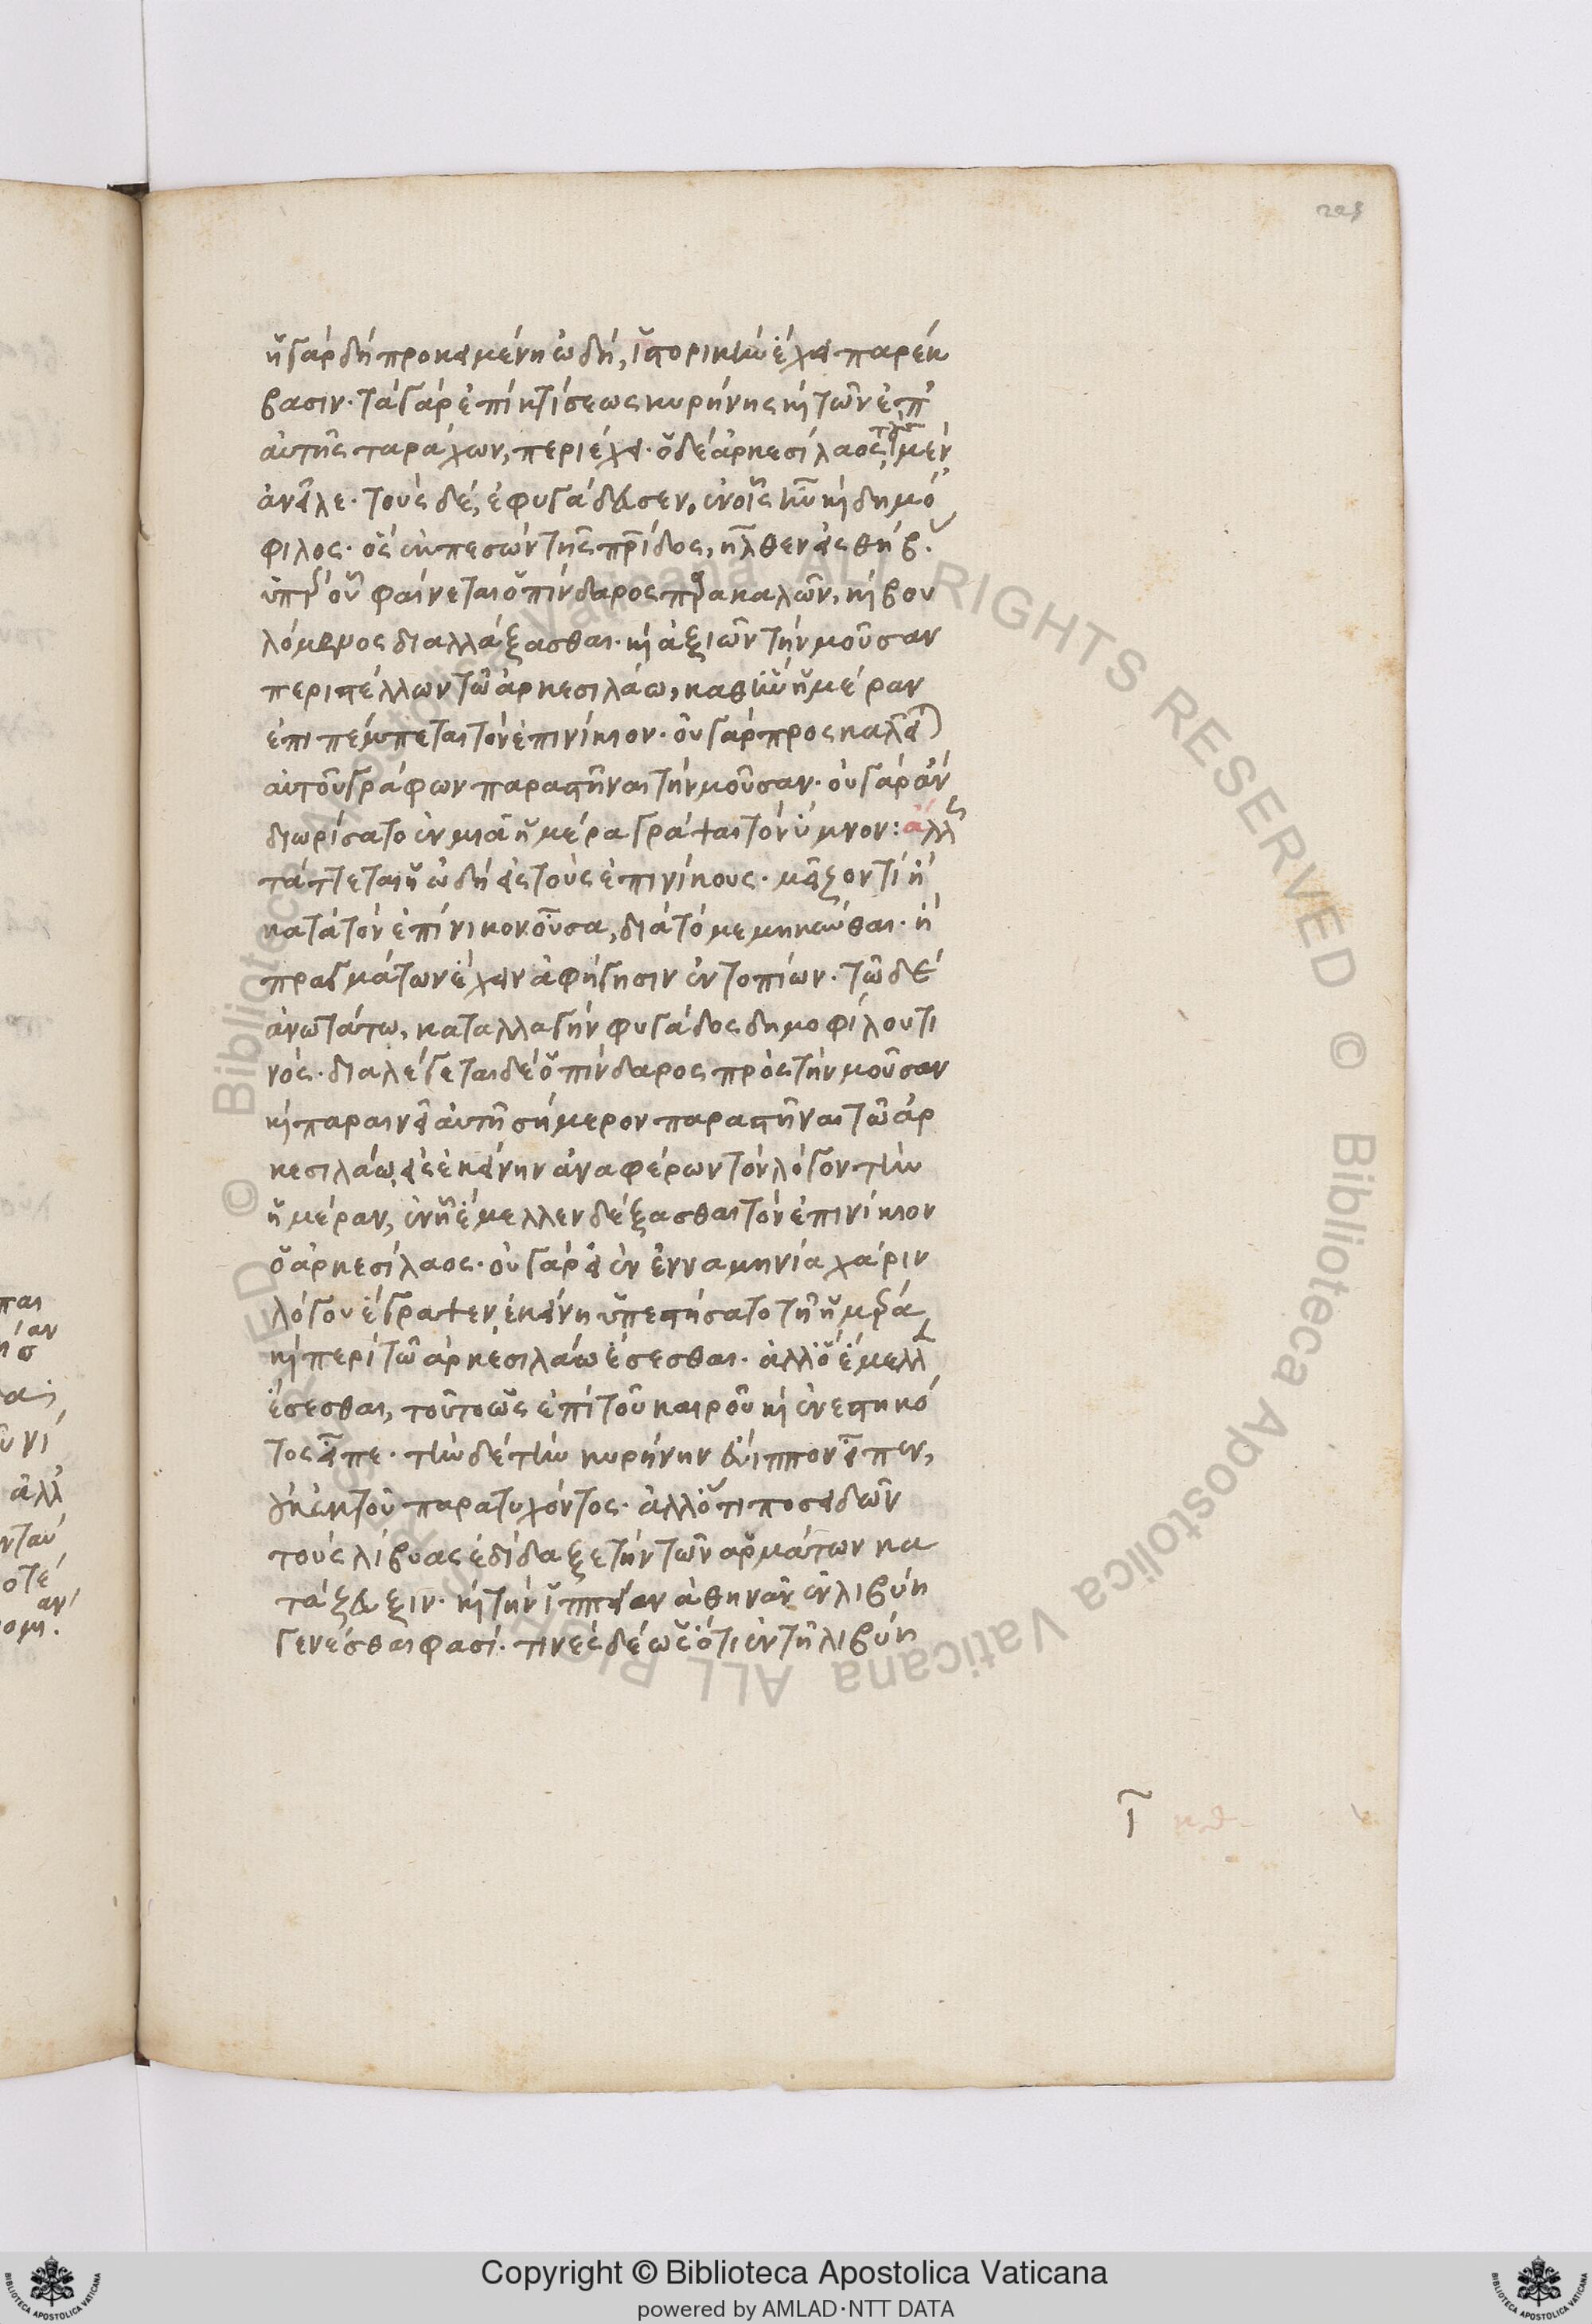 ἡ γὰρ δὴ προκειμένη ὠδὴ, ἱστορικὴν ἔχει παρέκ
βασιν· τὰ γὰρ ἐπὶ κτίσεως κυρήνης κỳ τῶν ἐπ'
αὐτῆς ταραχῶν, περιέχει· ὁ δὲ ἀρκεσίλαος μὲν
ἀνεῖλε· τοὺς δὲ, ἐφυγάδευσεν. ἐν οἷς ἦν κỳ δημό
φιλος· ὃς ἐκπεσὼν τῆς πρίδος, ἦλθεν εἰς θήβ
ὑπὲρ οὗ φαίνεται ὁ πίνδαρος παρακαλῶν, κỳ βου
λόμενος διαλλάξασθαι· κỳ ἀξιῶν τὴν μοῦσαν
περιστέλλων τῶ ἀρκεσιλάω, καθ' ἣν ἡμέραν
ἐπιπέμπεται τὸν ἐπινίκιον· οὐ γὰρ προσκαλεῖ
αὐτοῦ γράφων παραστῆναι τὴν μοῦσαν· οὐ γὰρ ἂν
διωρίσατο ἐν μιᾶ ἡμέρα γράψαι τὸν ὕμνον: ἄλλως
τάττεται ἡ ὠδὴ εἰς τοὺς ἐπινίκους· μεῖζον τὶ ἢ
κατὰ τὸν ἐπίνικον οὖσα, διὰ τὸ μεμηκύνθαι· ἢ
πραγμάτων ἔχειν ἀφήγησιν ἐντοπίων· τῶ δὲ
ἀνωτάτω, καταλλαγὴν φυγάδος δημοφίλου τι
νός· διαλέγεται δὲ ὁ πίνδαρος πρὸς τὴν μοῦσαν
κỳ παραινεῖ αὐτῆ σήμερον παραστῆναι τῶ ἀρ
κεσιλάω, εἰς ἐκείνην ἀναφέρων τὸν λόγον τὴν
ἡμέραν, ἐν ἧ ἔμελλεν δέξασθαι τὸν ἐπινίκιον
ὁ ἀρκεσίλαος· οὐ γὰρ εἰ ἐν ἐνναμηνία χάριν
λόγου ἔγραψεν, ἐκείνη ὑπεστήσατο τῆ ἡμρα
κỳ περὶ τῶ ἀρκεσιλάω ἔσεσθαι· ἀλλ' ὃ ἔμελλ
ἔσεσθαι, τοῦτο ὡς ἐπὶ τοῦ καιροῦ κỳ ἐνεστηκό
τος εἶπε· τὴν δὲ τὴν κυρήνην εὔιππον εἶπεν,
ἐκ τοῦ παρατυχόντος· ἀλλ' ὅτι ποσειδῶν
τοὺς λίβυας ἐδίδαξε τὴν τῶν ἁρμάτων κα
τάζευξιν· κỳ τὴν ἱππείαν ἀθηνᾶν ἐν λιβύη
γενέσθαι φασί· τινὲς δὲ ὡς ὅτι ἐν τῆ λιβύη
Copyright © Biblioteca Apostolica Vaticana
powered by AMLAD·NTT DATA